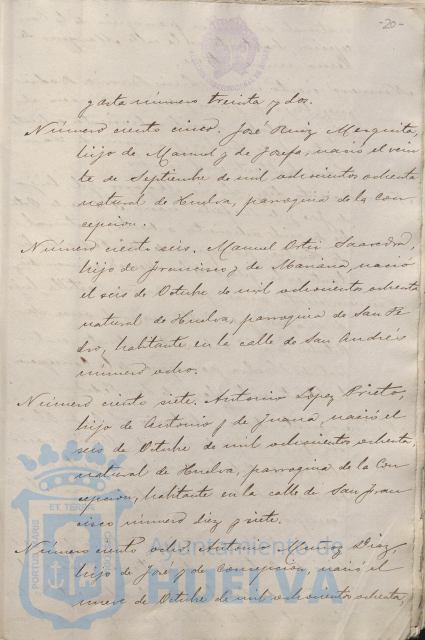 -20-
y Asta número treinta y dos.
Número ciento cinco. José Ruiz Mezquita,
hijo de Manuel y de Josefa, nació el vein
te de Septiembre de mil ochocientos ochenta
natural de Huelva, parroquia de la Con
cepcion.
Número ciento seis. Manuel Ortiz Saavedra,
hijo de Francisco y de Mariana, nació
el seis de Octubre de mil ochocientos ochenta
natural de Huelva, parroquia de San Pe
dro, habitante en la calle de San Andrés
número ocho.
Número ciento siete. Antonio López Prieto,
hijo de Antonio y de Juana, nació el
seis de Octubre de mil ochocientos ochenta,
natural de Huelva, parroquia de la Con
cepcion, habitante en la calle de San Fran
cisco número diez y siete.
Número ciento ocho. Antonio Diaz,
hijo de José y de Concepcion, nació el
nueve de Octubre de mil ochocientos ochenta,
PORTUS MARIS
ET TERRAE
CUSTODIA
Ayuntamiento de
HUELVA